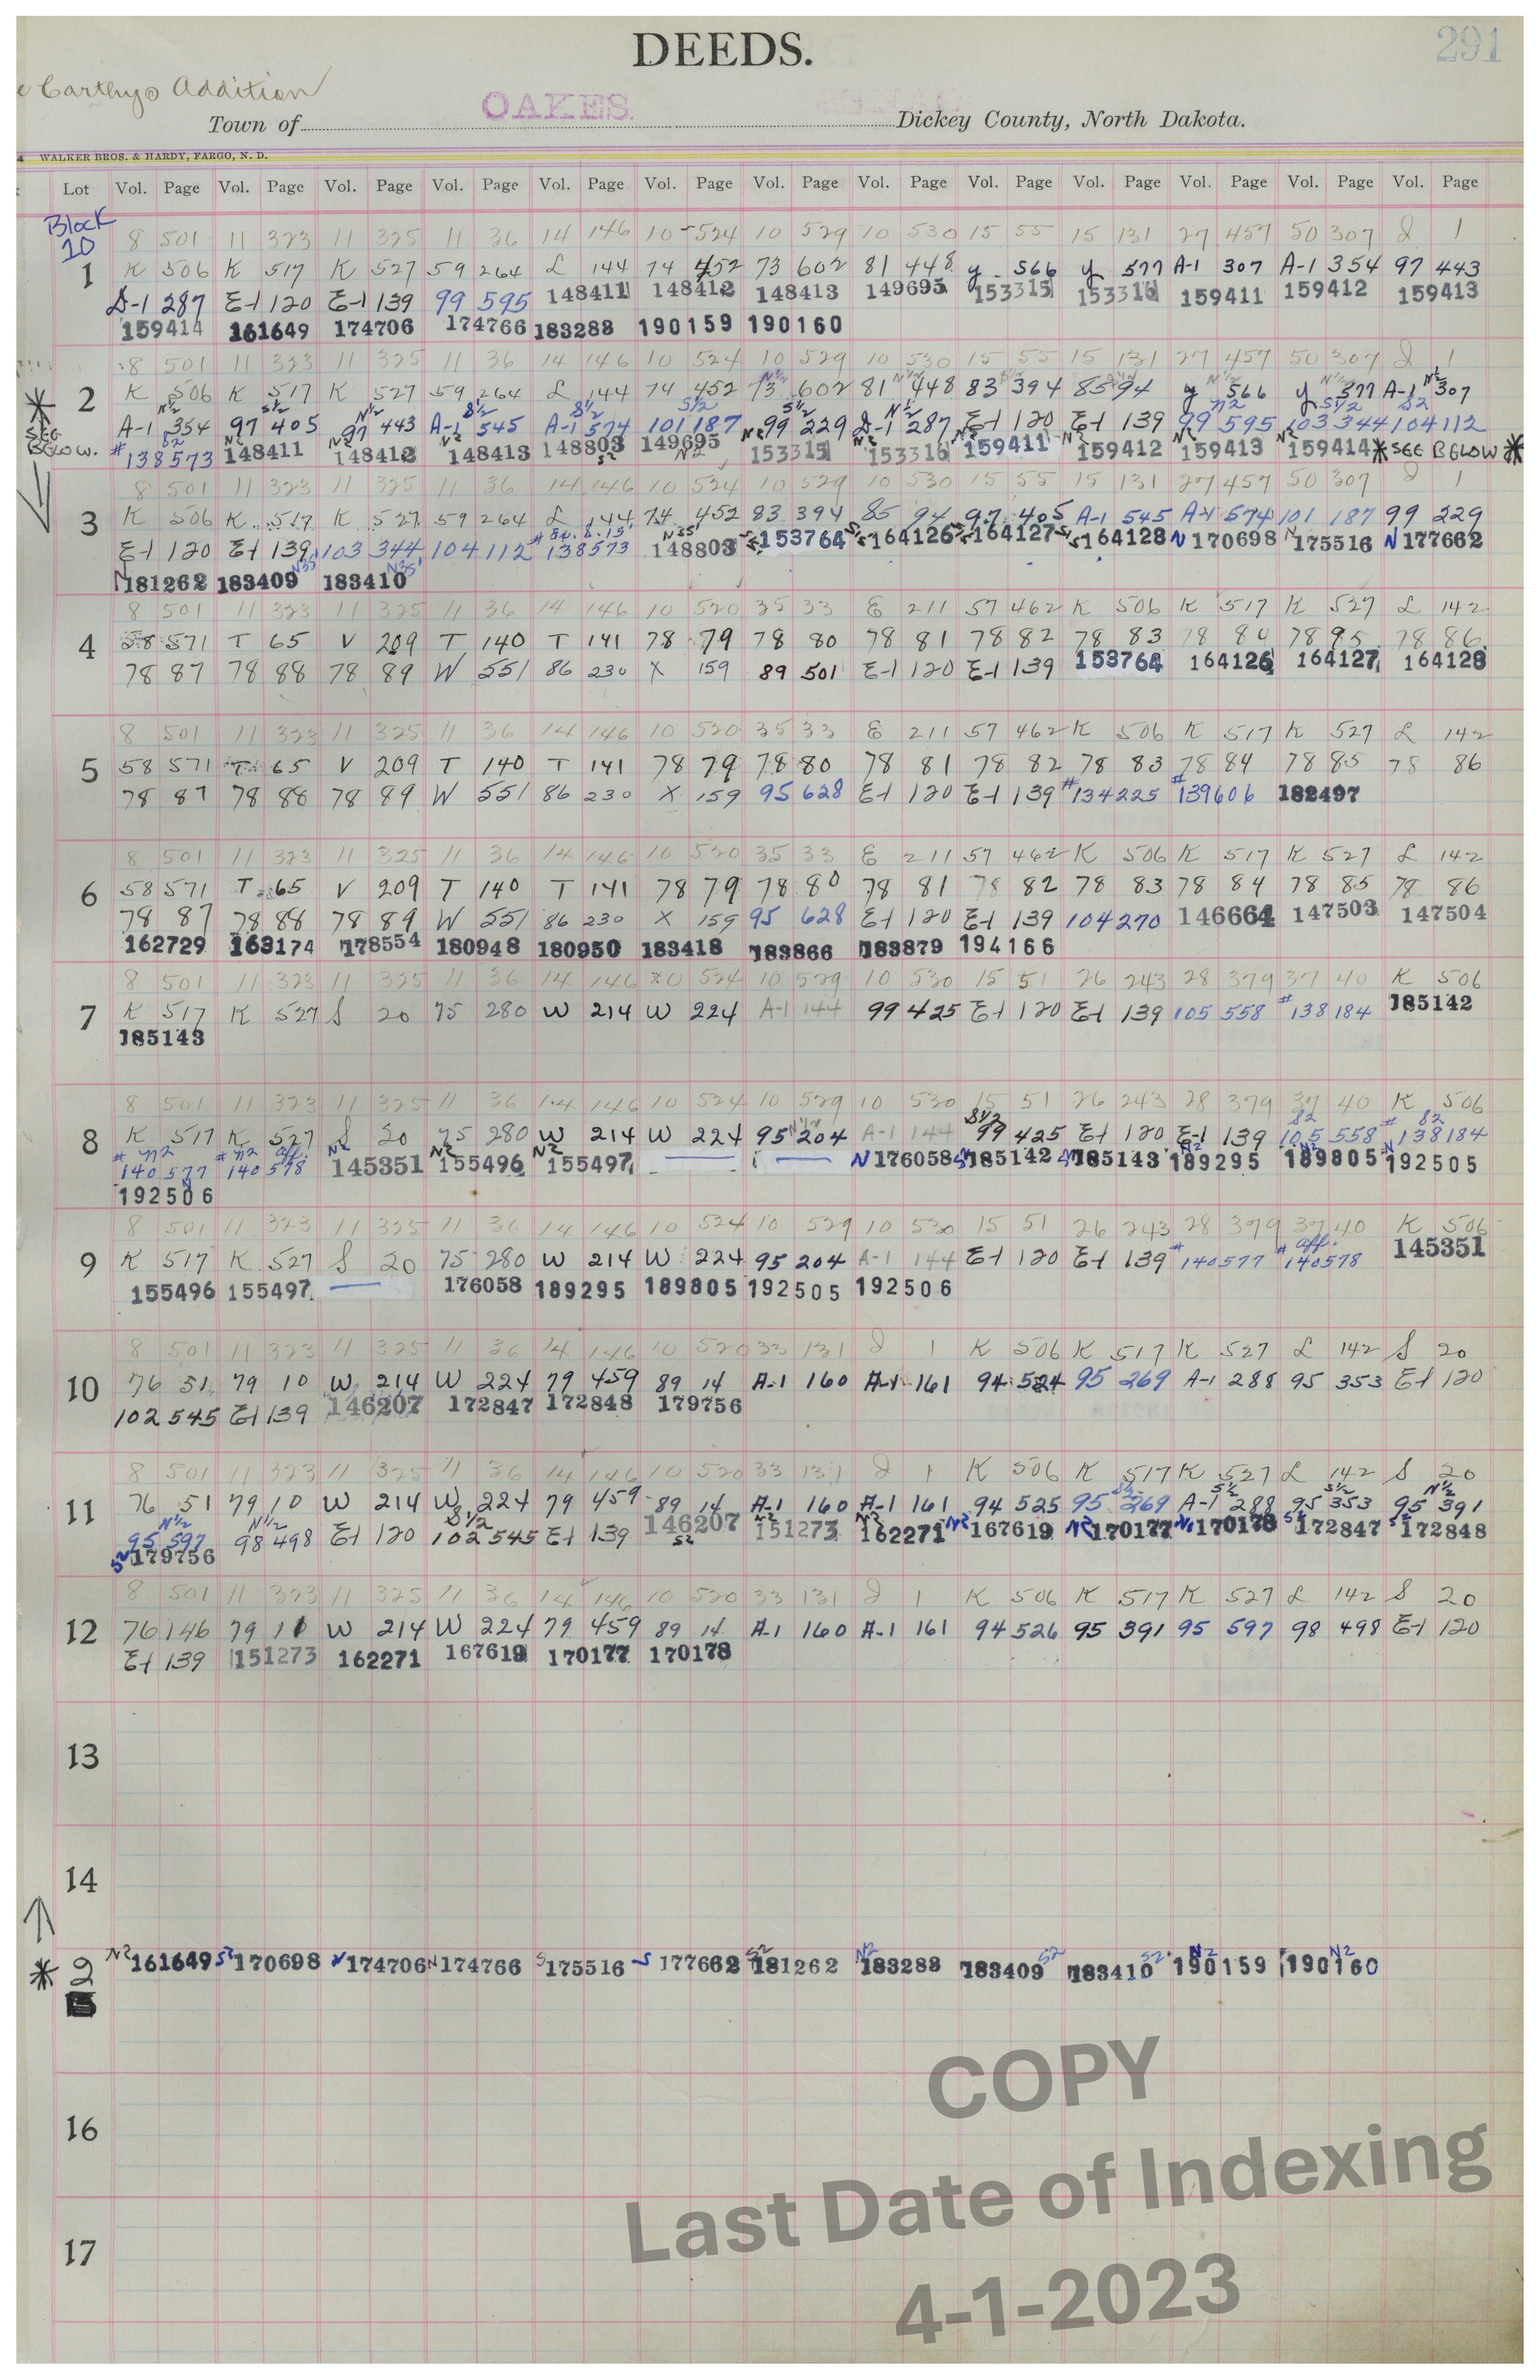 DEEDS.
291
Carthys Addition
OAKES.
Town of Dickey County, North Dakota.
WALKER BROS. & HARDY, FARGO, N. D.
Lot Vol. Page Vol. Page Vol. Page Vol. Page Vol. Page Vol. Page Vol. Page Vol. Page Vol. Page Vol. Page Vol. Page Vol. Page Vol. Page
Block
10
8 501 11 323 11 325 11 36 14 146 10 524 10 529 10 530 15 55 15 131 27 457 50 307 1
1 K 506 K 517 K 527 59 264 L 144 74 452 73 602 81 448 y 566 y 577 A-1 307 A-1 354 97 443
D-1 287 E-1 120 E-1 139 99 595 148411 148412 148413 149695 153315 153316 159411 159412 159413
159414 161649 174706 174766 183288 190159 190160
8 501 11 323 11 325 11 36 14 146 10 524 10 529 10 530 15 55 15 131 27 457 50 307 1
2 K 506 K 517 K 527 59 264 L 144 74 452 73 602 81 448 83 394 85 94 y 566 y 577 A-1 307
N½ S½ N½ S½ S½ S½ S½ N½ N2 S½ S2
* SEE BELOW.
A-1 354 97 405 97 443 A-1 545 A-1 574 101 187 99 229 D-1 287 E-1 120 E-1 139 99 595 103 344 104 112
#138573 148411 148412 148413 148803 149695 153315 153316 159411 159412 159413 159414 * SEE BELOW *
8 501 11 323 11 325 11 36 14 146 10 524 10 529 10 530 15 55 15 131 27 457 50 307 1
3 K 506 K 517 K 527 59 264 L 144 74 452 83 394 85 94 97 405 A-1 545 A-1 574 101 187 99 229
E-1 120 E-1 139 103 344 104 112 #138573 148803 153764 164126 164127 164128 N 170698 175516 N 177662
N 181262 183409 N35' 183410 N35'
8 501 11 323 11 325 11 36 14 146 10 520 35 33 E 211 57 462 K 506 K 517 K 527 L 142
4 58 571 T 65 V 209 T 140 T 141 78 79 78 80 78 81 78 82 78 83 78 84 78 85 78 86
78 87 78 88 78 89 W 551 86 230 X 159 89 501 E-1 120 E-1 139 153764 164126 164127 164128
8 501 11 323 11 325 11 36 14 146 10 520 35 33 E 211 57 462 K 506 K 517 K 527 L 142
5 58 571 T 65 V 209 T 140 T 141 78 79 78 80 78 81 78 82 78 83 78 84 78 85 78 86
78 87 78 88 78 89 W 551 86 230 X 159 95 628 E-1 120 E-1 139 #134225 #139606 182497
8 501 11 323 11 325 11 36 14 146 10 520 35 33 E 211 57 462 K 506 K 517 K 527 L 142
6 58 571 T 65 V 209 T 140 T 141 78 79 78 80 78 81 78 82 78 83 78 84 78 85 78 86
78 87 78 88 78 89 W 551 86 230 X 159 95 628 E-1 120 E-1 139 104 270 146664 147503 147504
162729 163174 178554 180948 180950 183418 183866 183879 194166
8 501 11 323 11 325 11 36 14 146 10 524 10 529 10 530 15 51 26 243 28 379 37 40 K 506
7 K 517 K 527 S 20 75 280 W 214 W 224 A-1 144 99 425 E-1 120 E-1 139 105 558 #138184 185142
185143
8 501 11 323 11 325 11 36 14 146 10 524 10 529 10 530 15 51 26 243 28 379 37 40 K 506
8 K 517 K 527 S 20 75 280 W 214 W 224 95 204 A-1 144 S½ 99 425 E-1 120 E-1 139 105 558 S2 #138184 S2
#140577 N2 #140578 N2 aff. 145351 155496 155497 N 176058 185142 185143 189295 189805 192505
192506
8 501 11 323 11 325 11 36 14 146 10 524 10 529 10 530 15 51 26 243 28 379 37 40 K 506
9 K 517 K 527 S 20 75 280 W 214 W 224 95 204 A-1 144 E-1 120 E-1 139 #140577 #140578 aff. 145351
155496 155497 176058 189295 189805 192505 192506
8 501 11 323 11 325 11 36 14 146 10 520 33 131 1 K 506 K 517 K 527 L 142 S 20
10 76 51 79 10 W 214 W 224 79 459 89 14 A-1 160 A-1 161 94 524 95 269 A-1 288 95 353 E-1 120
102 545 E-1 139 146207 172847 172848 179756
8 501 11 323 11 325 11 36 14 146 10 520 33 131 1 K 506 K 517 K 527 L 142 S 20
11 76 51 79 10 W 214 W 224 79 459 89 14 A-1 160 A-1 161 94 525 95 269 S½ A-1 288 S½ 95 353 S½ 95 391 N½
95 597 N½ 98 498 N½ E-1 120 102 545 S½ E-1 139 146207 S2 151273 162271 167619 170177 170178 172847 172848
S2 179756
8 501 11 323 11 325 11 36 14 146 10 520 33 131 1 K 506 K 517 K 527 L 142 S 20
12 76 146 79 11 W 214 W 224 79 459 89 14 A-1 160 A-1 161 94 526 95 391 95 597 98 498 E-1 120
E-1 139 151273 162271 167619 170177 170178
13
14
* 2 N2 161649 S2 170698 N 174706 N 174766 S 175516 S 177662 S2 181262 N2 183288 183409 S2 183410 S2 190159 N2 190160 N2
16
17
COPY
Last Date of Indexing
4-1-2023